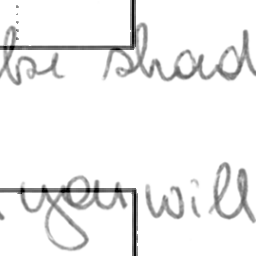 be shad
you will